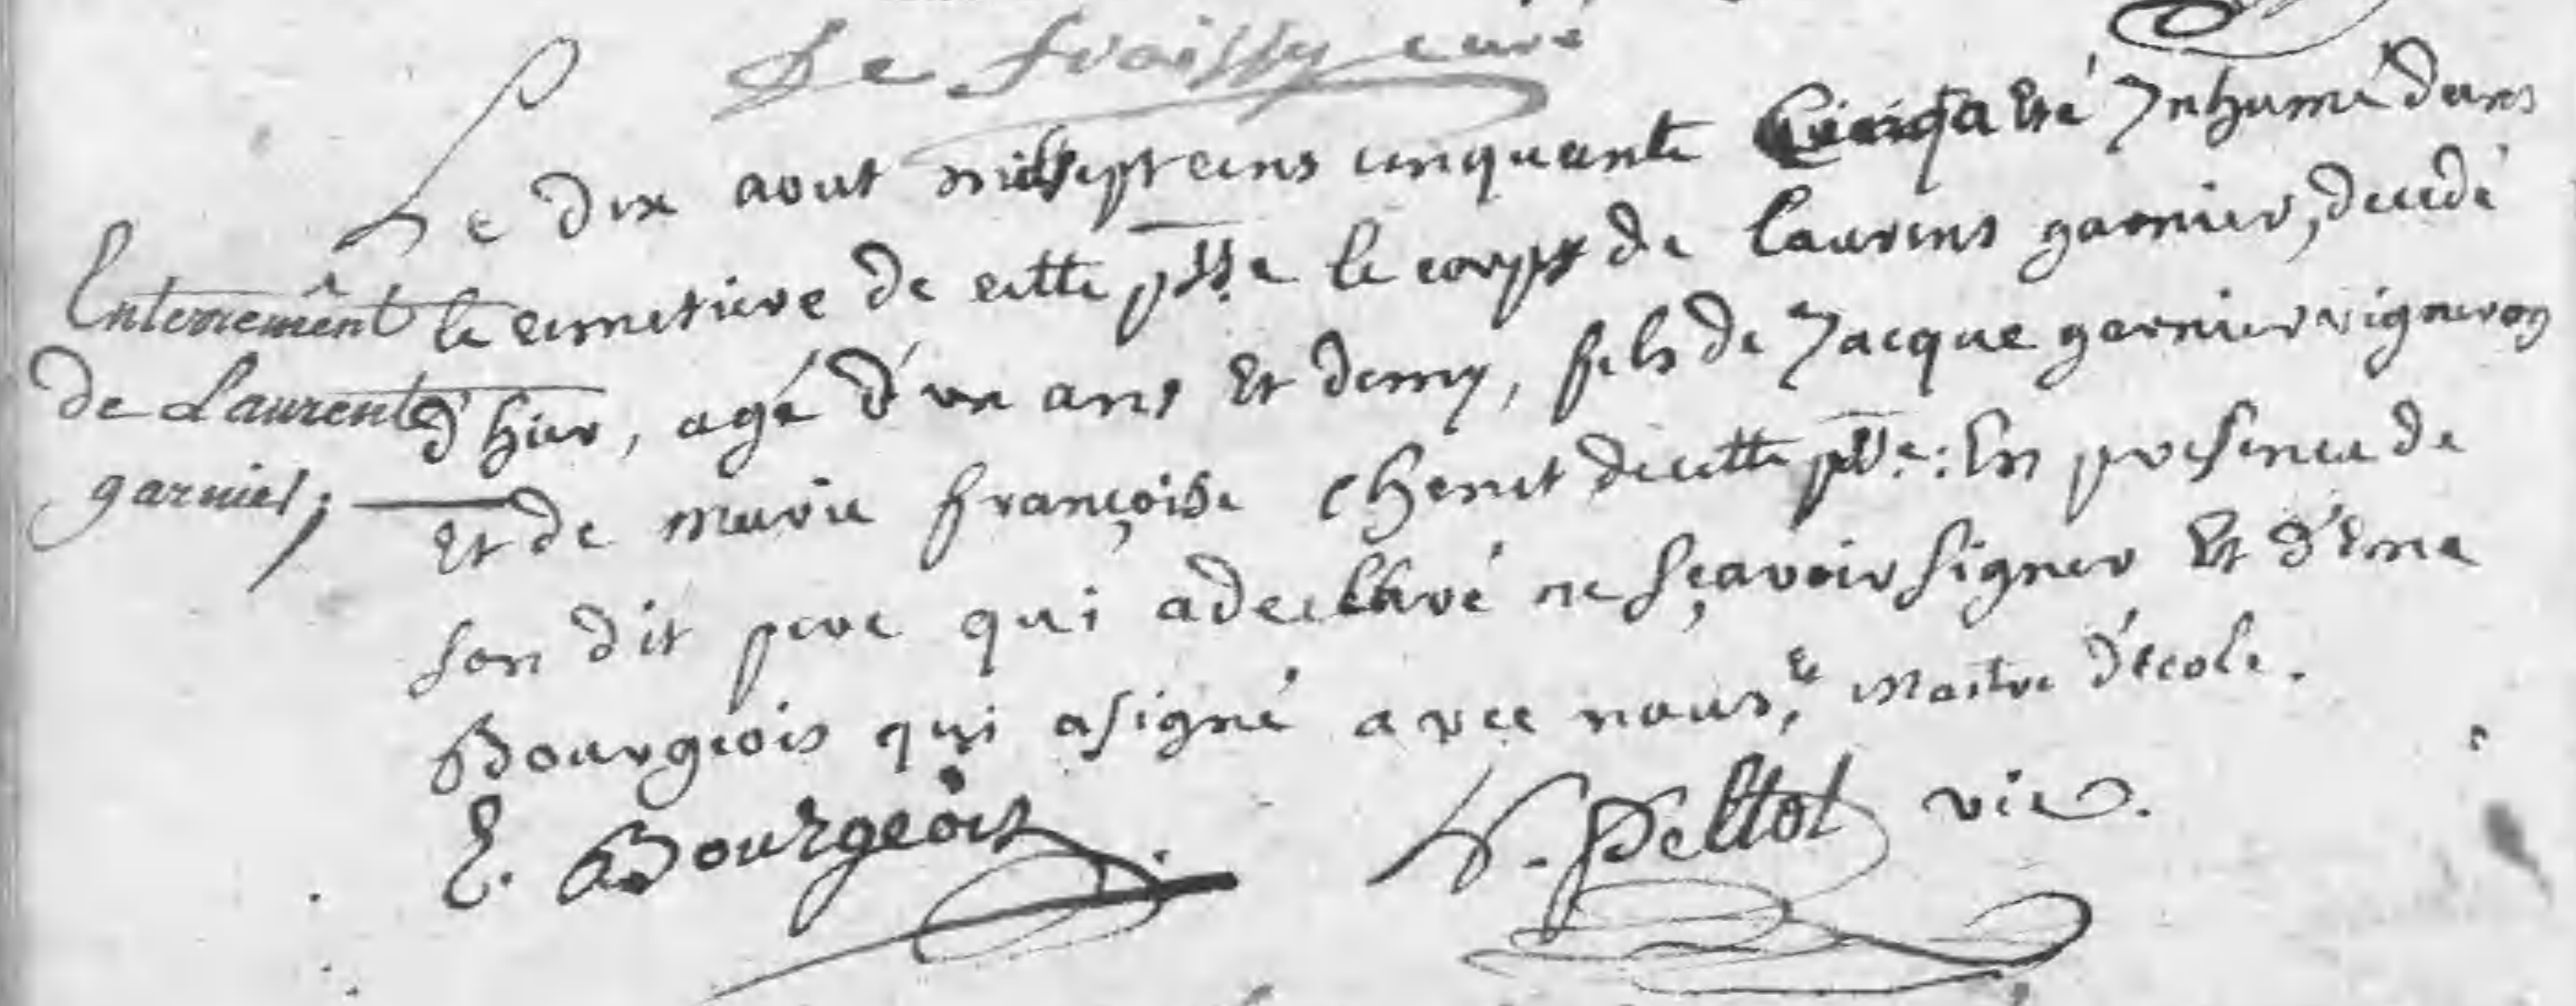 De Froissy curé
Le dix aout mil sept cens cinquante Cinq a Eté Inhumé dans
le cimetiere de cette psse le corps de laurens garnier, decedé
d'hier, agé d'un ans Et demy, fils de Jacque garnier vigneron
Et de marie françoise Chenet de cette psse: En presence de
son dit pere qui a declaré ne sçavoir signer Et d'Eme
Bourgeois qui a signé avec nous, Et Maitre d'école.
Enterremênt
de Laurent
garnier,
E. Bourgeois
N. Peltot vic.